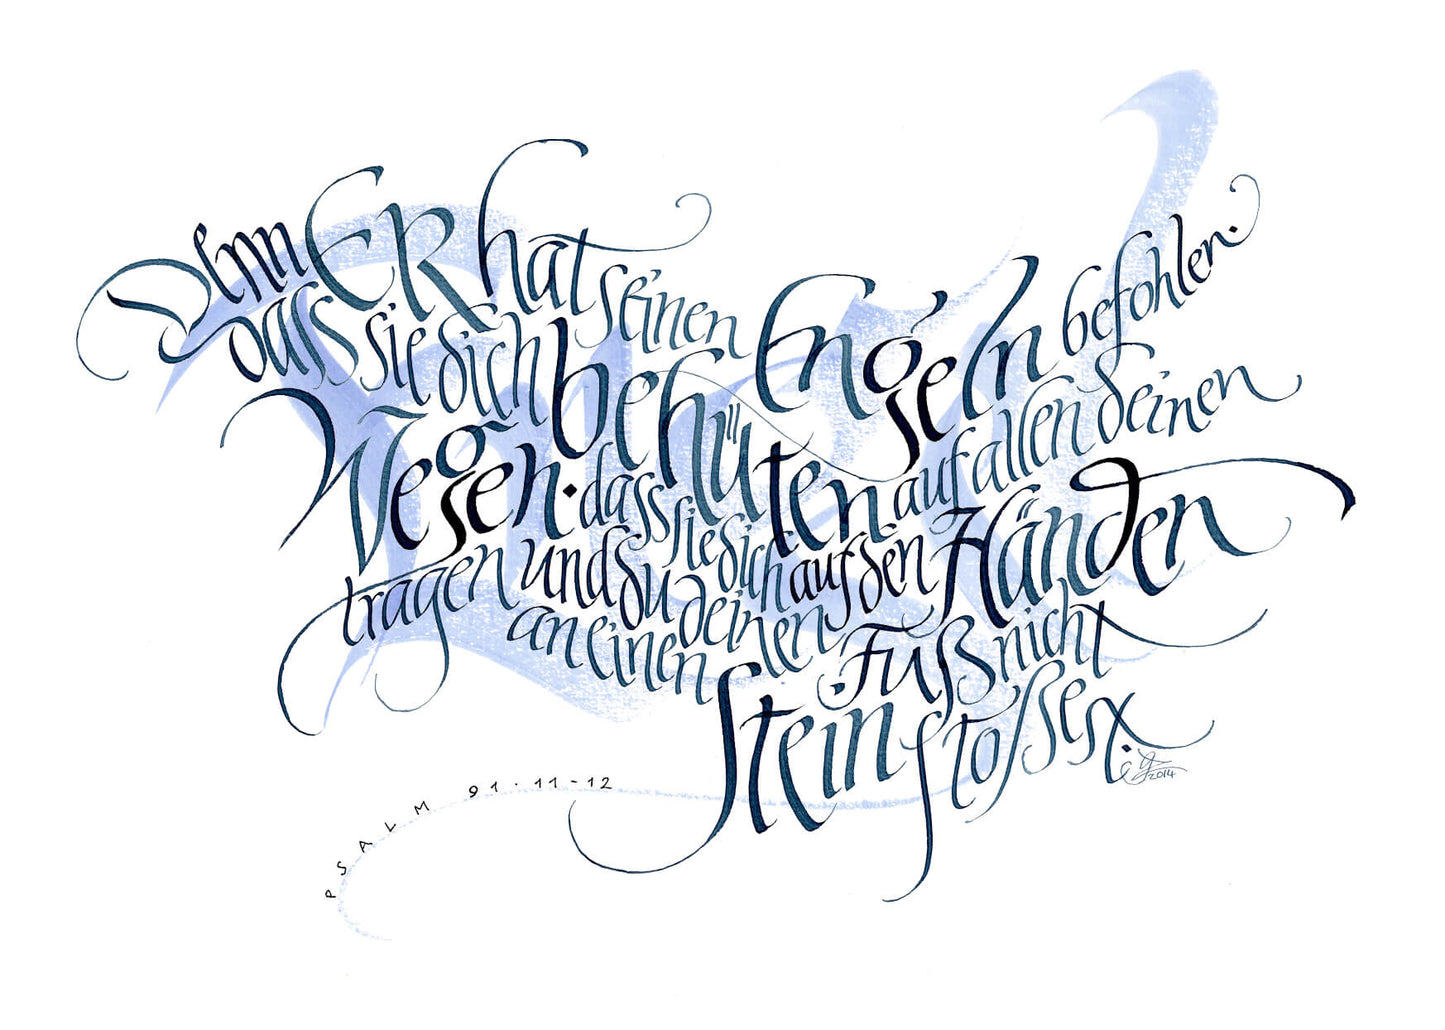 Denn ER hat seinen Engeln befohlen.
dass sie dich behüten auf allen deinen
Wegen · dass sie dich auf den Händen
tragen und du deinen Fuß nicht
an einen Stein stoßest.
PSALM 91·11-12
2014